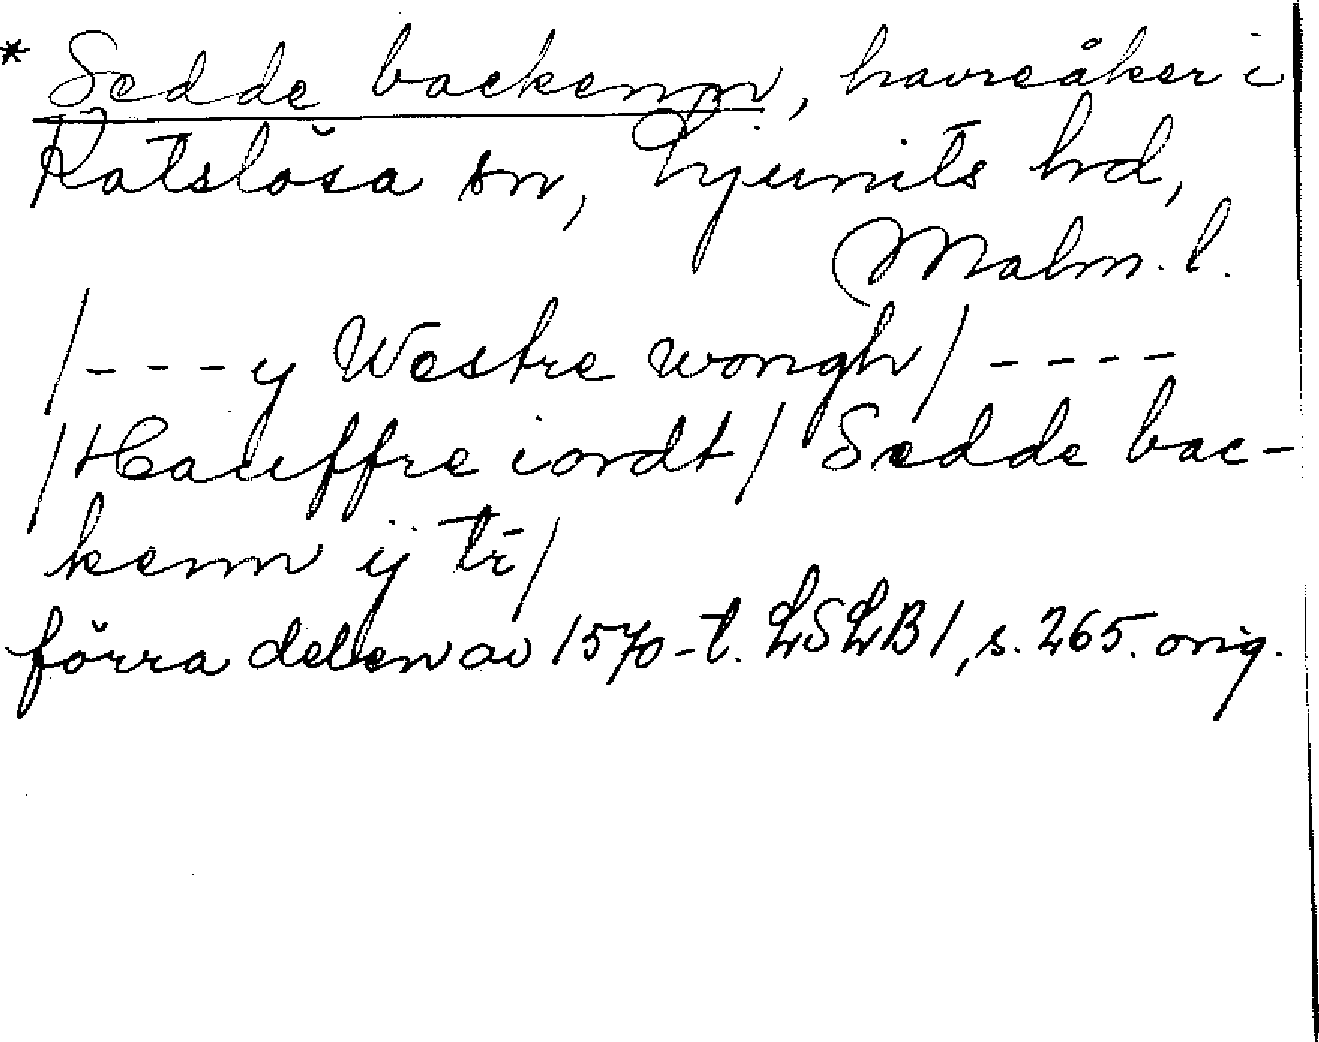 * Sedde backenn, havreåker i
Katslösa sn, Ljunits hd,
Malm. l.
/---y Westre wongh/----
/Hauffre iordt/ Sedde bac-
kenn ij tr/
förra delen av 1570-t. LSLB1, s. 265. orig.